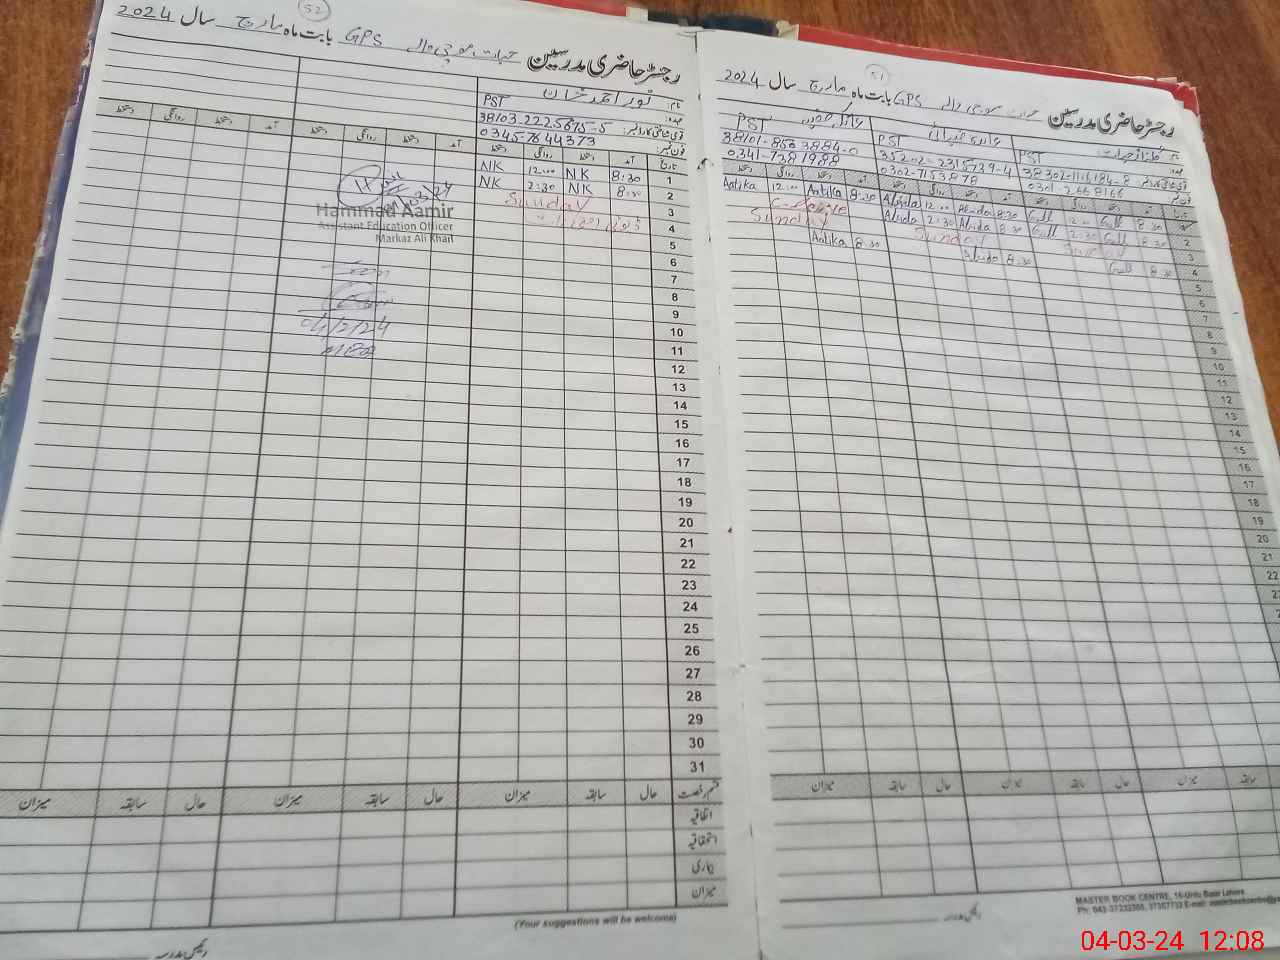 رجسٹر حاضری مدرسین GPS بابت ماہ مارچ سال 2024
52
نام: نور احمد خان
عہدہ: PST
قومی شناختی کارڈ نمبر: 38103-2225675-5
فون نمبر: 0345-7644373
تاریخ آمد دستخط روانگی دستخط آمد دستخط روانگی دستخط آمد دستخط روانگی دستخط
1 8:30 NK 12:00 NK
2 8:30 NK 2:30 NK
3 Sunday
4
5
6
7
8
9
10
11
12
13
14
15
16
17
18
19
20
21
22
23
24
25
26
27
28
29
30
31
Hammad Aamir
Assistant Education Officer
Markaz Ali Khail
04/2/24
قسم رخصت حال سابقہ میزان حال سابقہ میزان حال سابقہ میزان
اتفاقیہ
استحقاقیہ
بیماری
میزان
(Your suggestions will be welcome)
رئیس مدرسہ
رجسٹر حاضری مدرسین GPS بابت ماہ مارچ سال 2024
51
PST PST PST
38302-1116184-8 35202-2315739-4 38101-8503884-0
0301-2668166 0302-7153878 0341-7381988
8:30 Gull 12:00 Gull 8:30 Abida 12:00 Abida 8:30 Aatika 12:00 Aatika
2 8:30 Gull 2:30 Gull 8:30 Abida 2:30 Abida C-leave
3 Sunday Sunday Sunday
4 8:30 Gull 8:30 Abida 8:30 Aatika
5
6
7
8
9
10
11
12
13
14
15
16
17
18
19
20
21
22
سابقہ میزان حال سابقہ میزان حال سابقہ میزان
MASTER BOOK CENTRE, 16-Urdu Bazar Lahore
Ph: 042-37232366, 37357733 E-mail:
رئیس مدرسہ
04-03-24 12:08